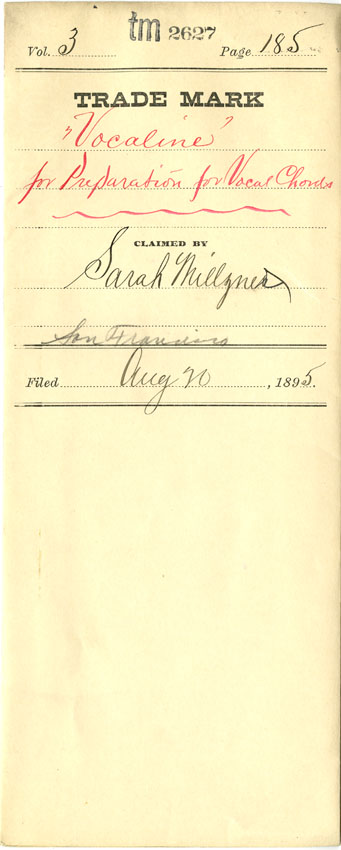 tm 2627
Vol. 3 Page 185
TRADE MARK
"Vocaline"
for Preparation for Vocal Chords
CLAIMED BY
Sarah Millzner
San Francisco
Filed Aug 20, 1895.